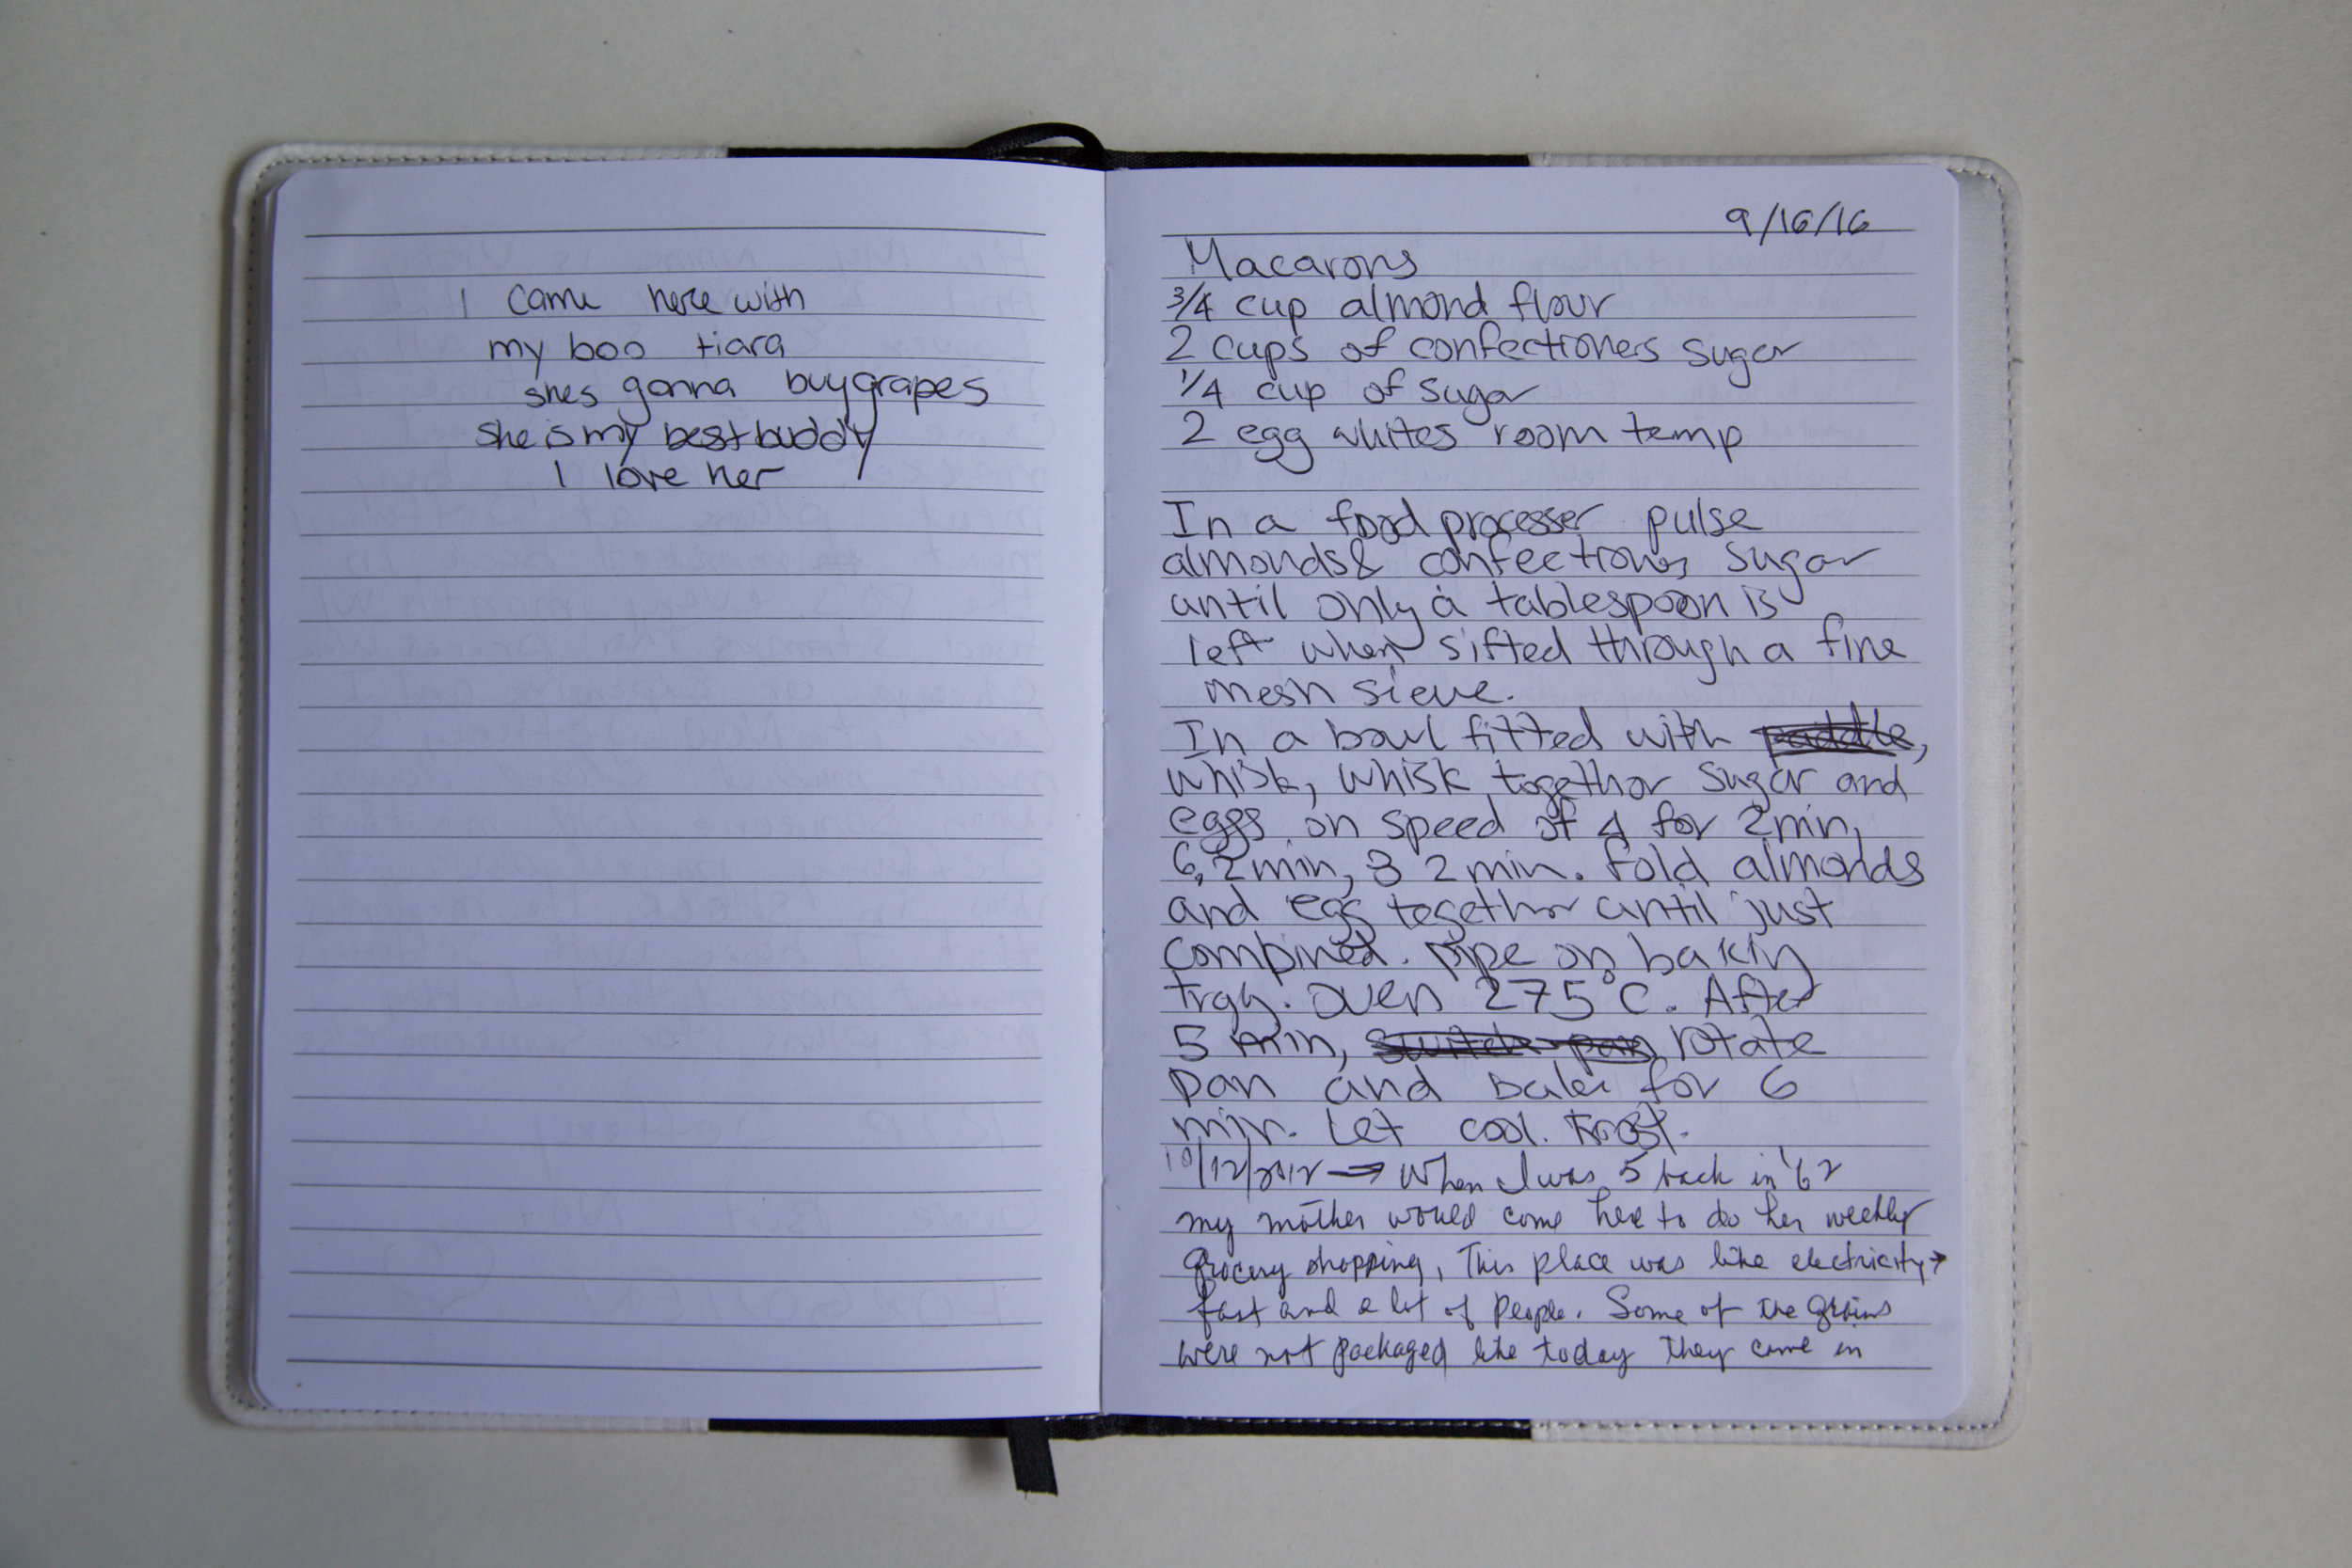 I came here with
my boo tiara
shes gonna buy grapes
she is my best buddy
I love her
9/16/16
Macarons
3/4 cup almond flour
2 cups of confectioners sugar
1/4 cup of sugar
2 egg whites room temp
In a food processer pulse
almonds & confectioners sugar
until only a tablespoon is
left when sifted through a fine
mesh sieve.
In a bowl fitted with paddle,
whisk, whisk together sugar and
eggs on speed of 4 for 2min,
6, 2min, 8 2min. Fold almonds
and egg together until just
combined. pipe on baking
tray. oven 275°C. After
5 min, switch pan rotate
pan and bake for 6
min. Let cool. Frost.
10/12/2012 → When I was 5 back in '62
my mother would come here to do her weekly
grocery shopping, This place was like electricity →
fast and a lot of people. Some of the grains
were not packaged like today they came in